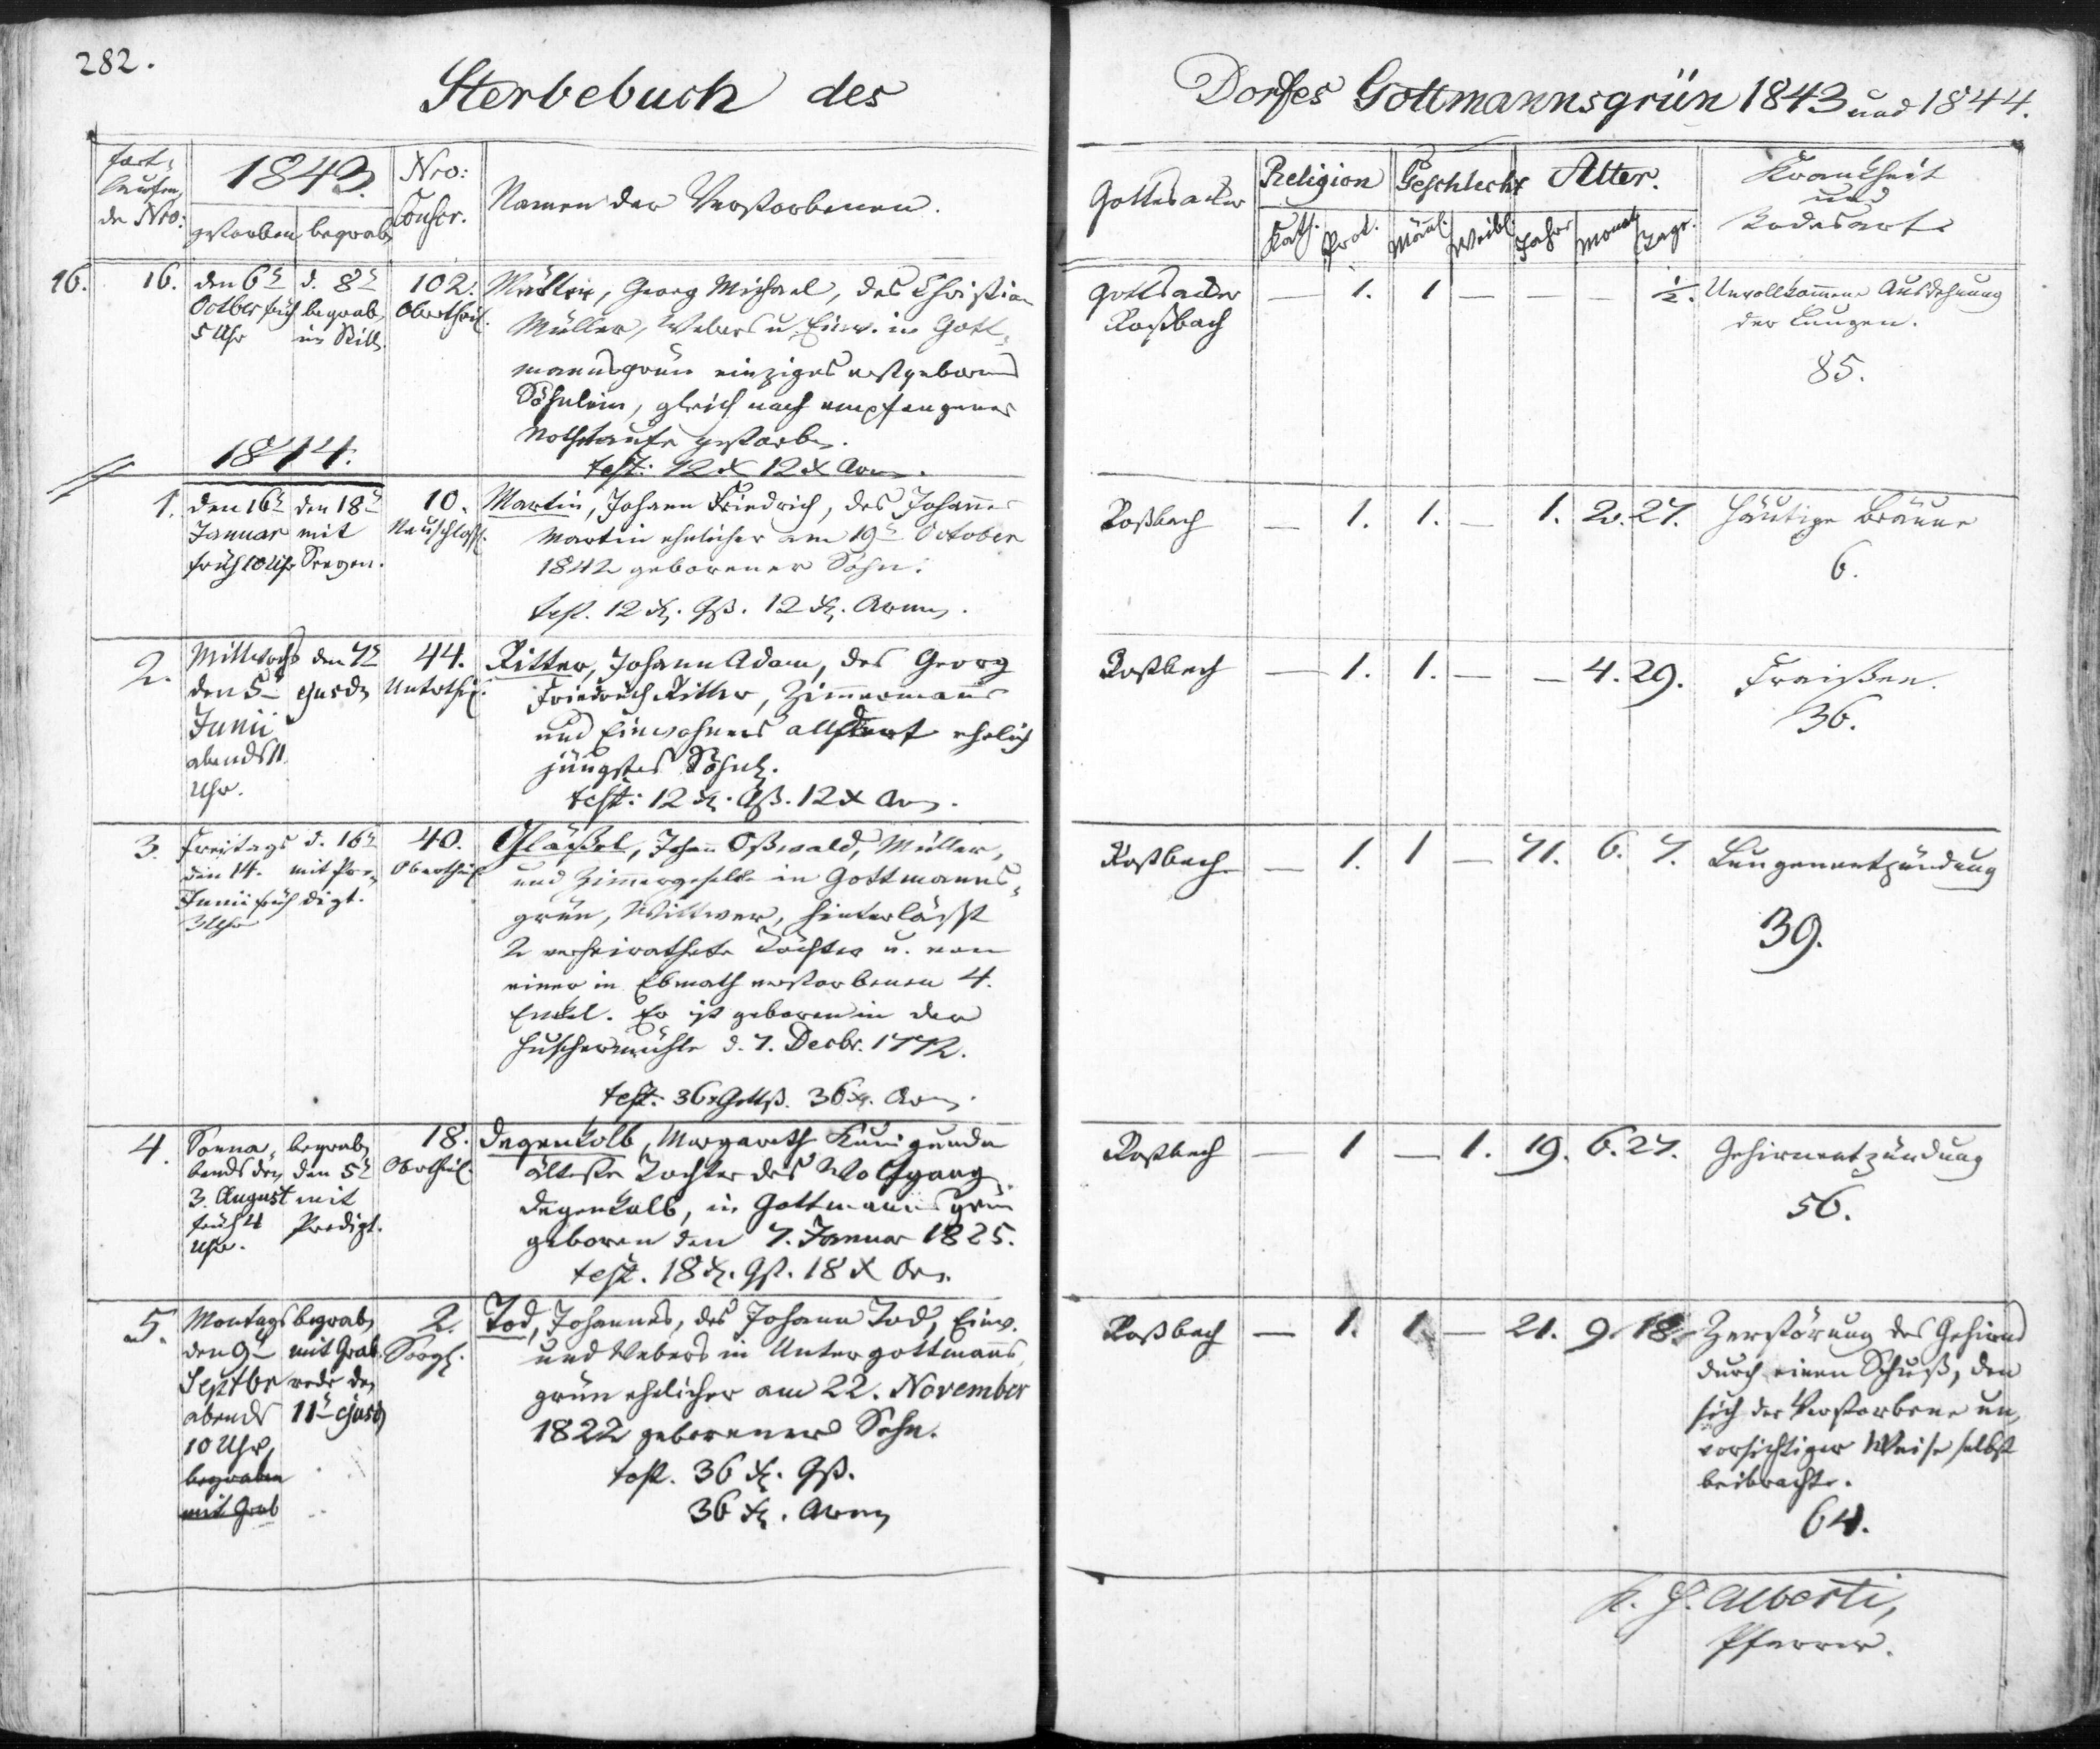 282.
Sterbebuch des
Dorfes Gottmannsgrün 1843 und 1844.
fort-
laufen-
de Nro:
1843.
gestorben
begrab
Nro:
Conscr.
Namen der Verstorbenen.
Gottesacker
Religion
Kath.
Prot.
Geschlecht
Mänl.
Weibl.
Alter.
Jahr
Monat
Tage.
Krankheit
und
Todesart
16.
16.
den 6t
Octber früh
5 Uhr
d. 8t
begrab
im Still
102.
Obertheil.
Müller, Georg Michael, des Christian
Müller, Webers u. Einw. in Gott-
mannsgrün einziges erstgebornes
Söhnlein, gleich nach empfangener
Nothtaufe gestorben.
12 x 12 x Arm
Gottsacker
Roßbach
— 1. 1 — — — ½.
Unvollkommene Ausdehnung
der Lungen.
85.
1844.
1.
den 16t
Januar
früh 10 Uhr
den 18t
mit
Seegen.
10.
Neuschloss.
Martin, Johann Friedrich, des Johannes
Martin ehelicher am 19t October
1842 geborener Sohn.
test. 12 x. Gß. 12 x. Armen.
Roßbach
— 1. 1. — 1. 2. 27.
Häutige Bräune
6.
2.
Mittwochs
den 5t
Junii
abends 11
Uhr.
den 7t
ejusd
44.
Untrtheil.
Ritter, Johann Adam, des Georg
Friedrich Ritter, Zimmermanns
und Einwohners alldort ehelich
jüngstes Söhnl.
test: 12 x. Gß. 12 x Arm.
Roßbach
— 1. 1. — — 4. 29.
Fraißen.
36.
3.
Freitags
den 14.
Junii früh
3 Uhr
d. 16t
mit Pre-
digt.
40.
Obertheil
Gläßel, Johann Oßwald, Müller,
und Zimmergeselle in Gottmanns-
grün, Wittwer, hinterläßt
2 verheirathete Töchter u. von
einer in Ebmath verstorbenen 4.
Enkel. Er ist geboren in der
Huschermühle d. 7. Decbr. 1772.
test: 36x Gottß. 36x. Arm.
Roßbach
— 1. 1 — 71. 6. 7.
Lungenentzündung
39.
4.
Sonna-
bends den
3. August
früh 4
Uhr.
begrab
den 5t
mit
Predigt.
18.
Obertheil
Degenkolb, Margareth Kunigunda
älteste Tochter des Wolfgang
Degenkolb, in Gottmannsgrün
geboren den 7. Januar 1825.
test. 18 x. Gß. 18 x Ar.
Roßbach
— 1 — 1. 19. 6. 27.
Gehirnentzündung
56.
5.
Montags
den 9t
Septbr
abends
10 Uhr,
begraben
mit Grab
begrab
mit Grab
rede den
11t ejusd
2.
Sorgh.
Tod, Johannes, des Johann Tod, Einw.
und Webers in Untergottmanns-
grün ehelicher am 22. November
1822 geborener Sohn.
test. 36 x. Gß.
36 x. Armen
Roßbach
— 1. 1. — 21. 9. 18.
Zerstörung des Gehirns
durch einen Schuß, den
sich der Verstorbene un-
vorsichtiger Weise selbst
beibrachte.
64.
Alberti,
Pfarrer.